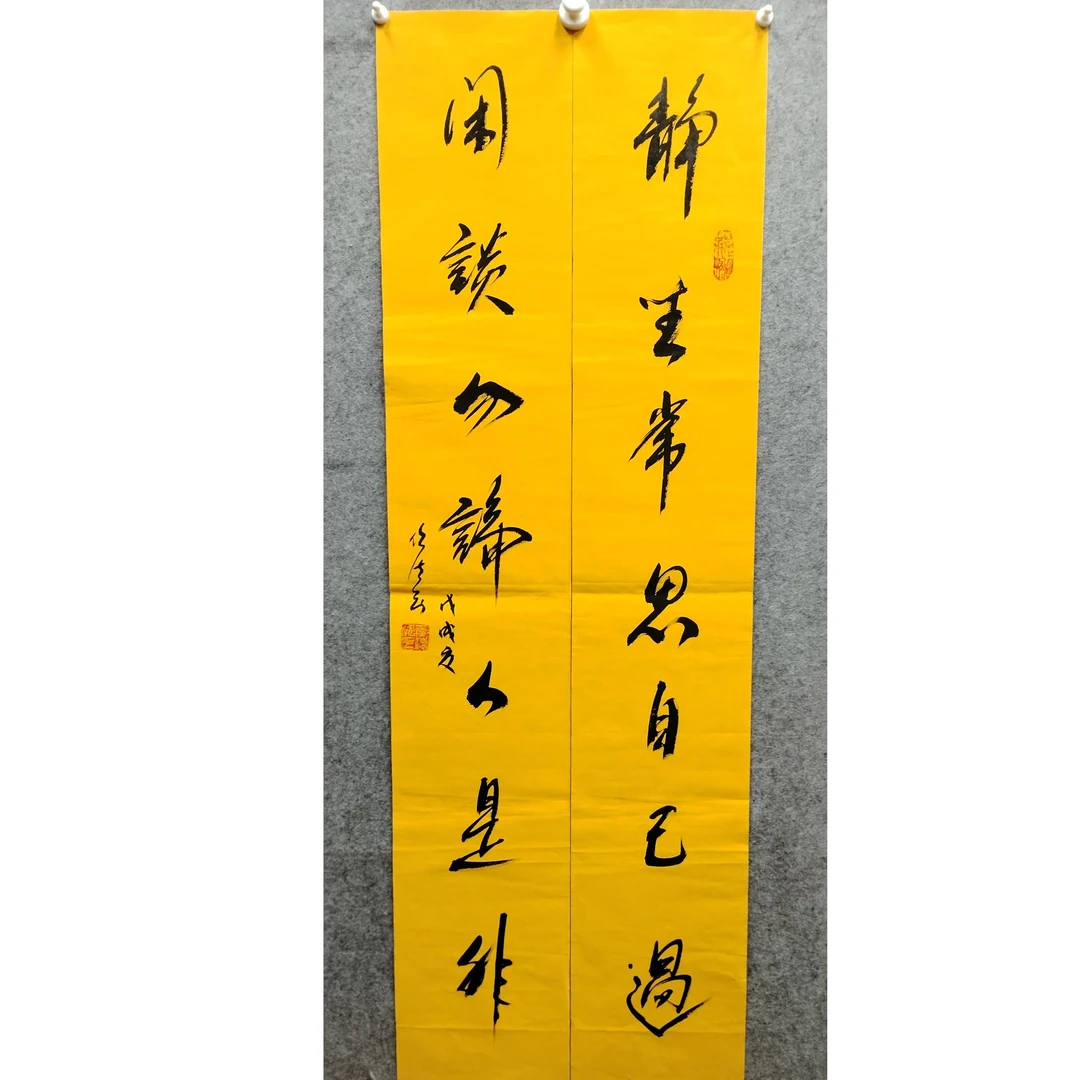 靜坐常思自己過
閑談勿論人是非
戊戌夏